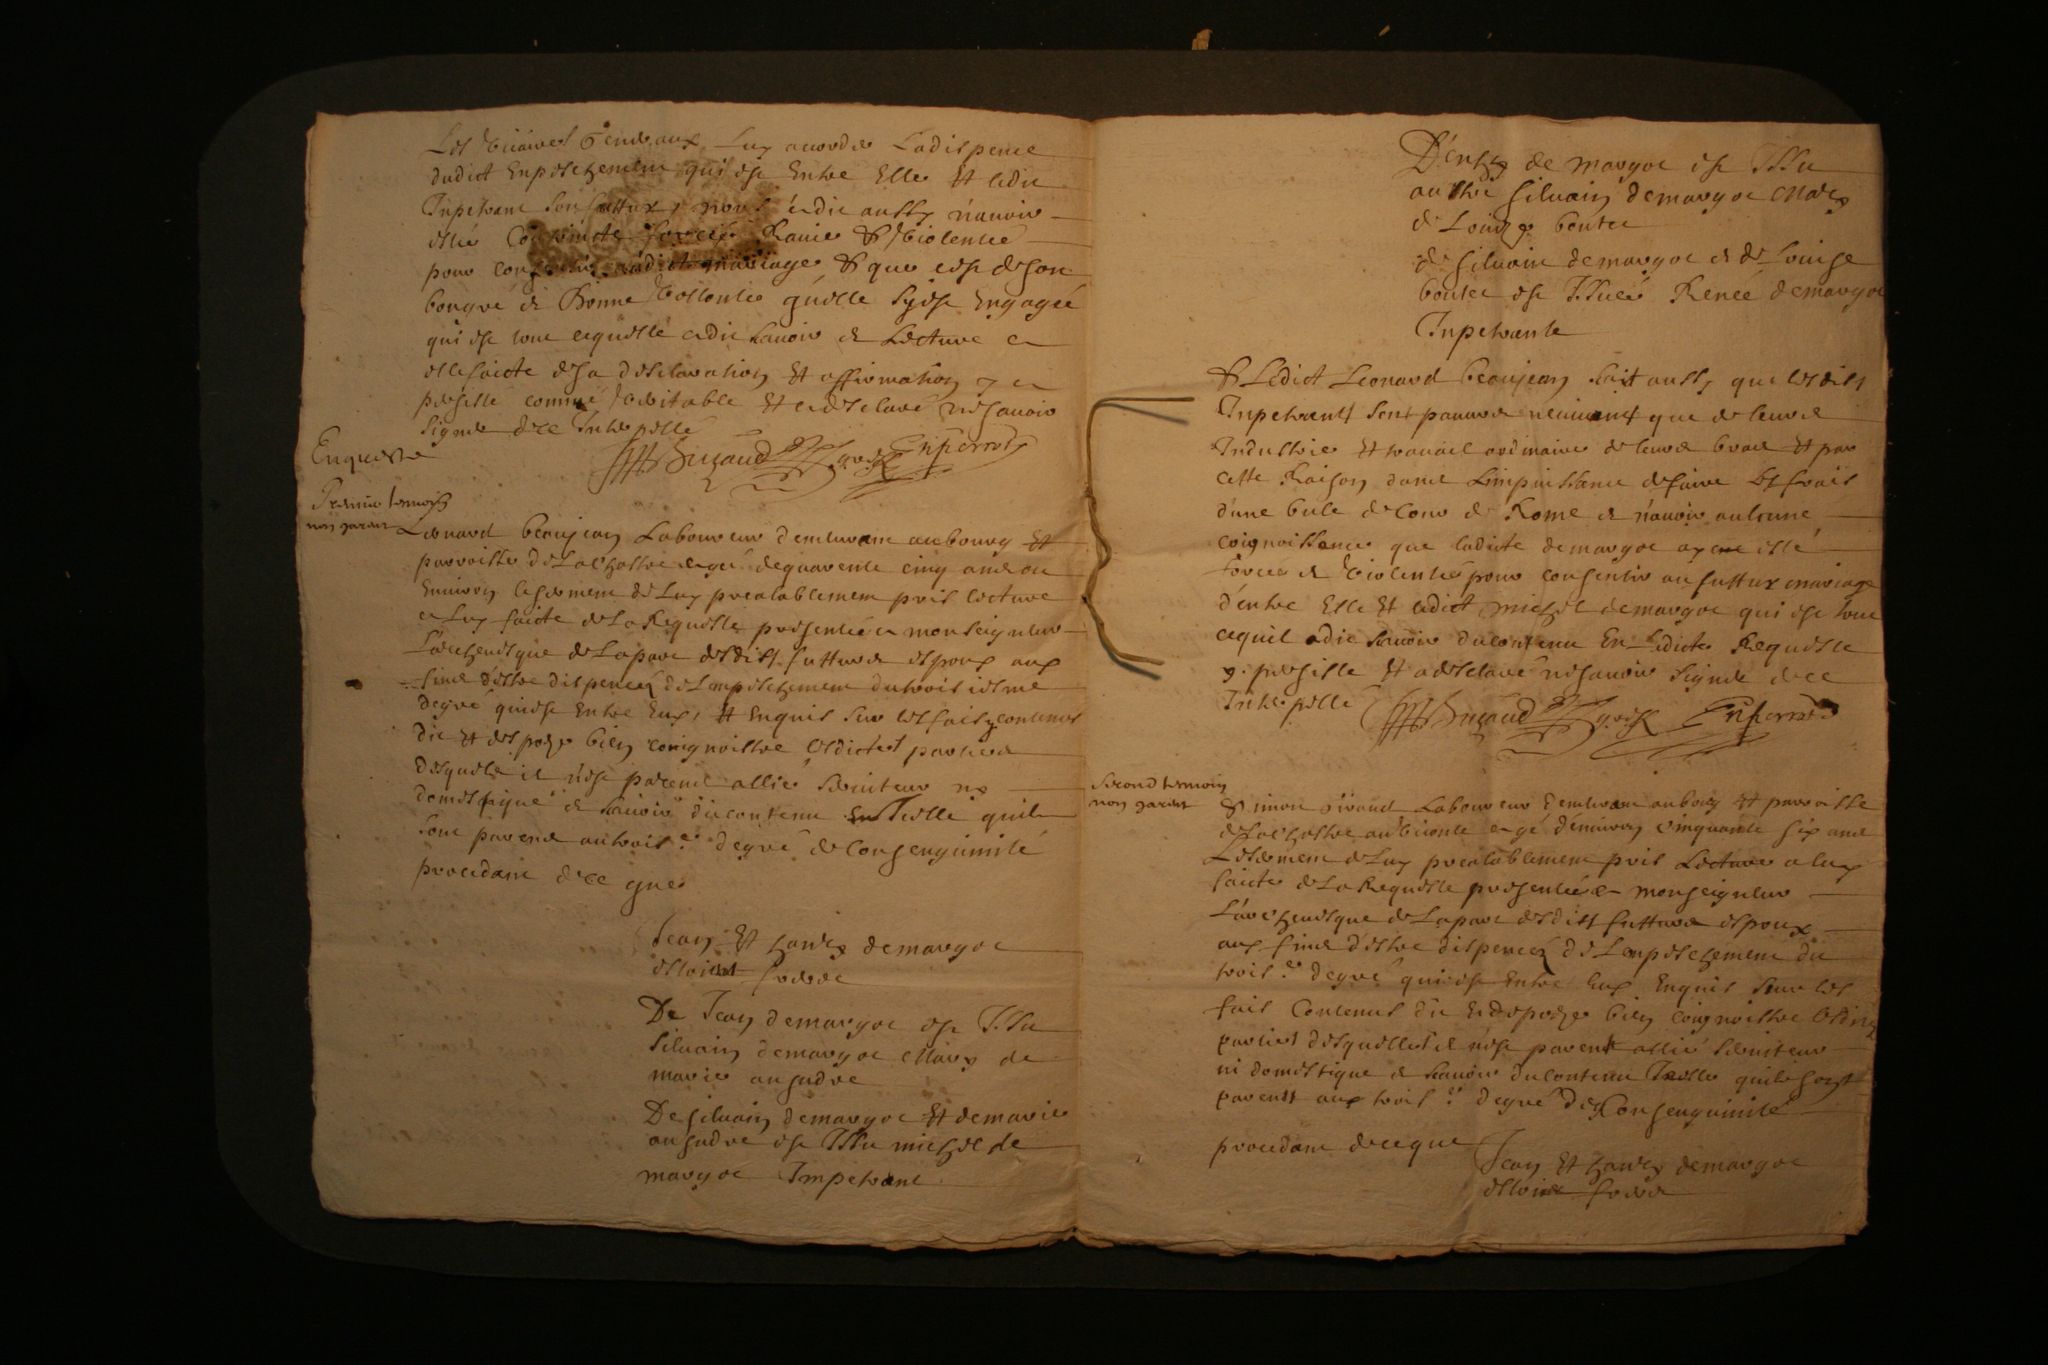 Les Viaires Generaux Luy accorder La dispence
dudict Enpeschement qui est Entre Elle Et ledict
Inpetrant son futtur, nous a dit aussy n'auoir
esté Contrainte forcée Rauie & Violentée
pour consentir audict mariage & que cest de son
bongré & Bonne Vollontée qu'elle sy est Engagée
qui est tout ce qu'elle a dit sauoir & Lecture a
elle faicte de sa desclaration Et affirmation y a
persisté comme Veritable Et a desclaré ne sauoir
signer de ce Interpellé
Bugaud Enferrand
Enqueste
Premier temoin
non parent
Leonard Beaujean Laboureur demeurant au bourg Et
parroisse de La Chastre agé de quarente cinq ans ou
Enuiron le serment de Luy prealablement pris lecture
a Luy faicte de La Requeste presentée a monseigneur
L'archeuesque de La part desdits futturs espoux aux
fins d'estre dispencez de Lempeschement du troisiesme
degré qui est Entre Eux, Et Enquis sur les faits y contenus
dit Et despoze bien congnoistre lesdictes parties
desquels il n'est parent allié seruiteur ny
domestique & sauoir du contenu En Icelle quils
sont parens au trois.e degré de Consenguinité
procedant de ce que
Jean Et hanry demargot
estoient freres
De Jean demargot est Issu
siluain demargot Mary de
marie ausudre
De siluain demargot Et de marie
ausudre est Issu michel de
margot Impetrant
D'enhry de margot est Issu
autre siluain demargot Mary
de Louize boutet
de siluain demargot & de Louise
boutet est Issuée Renée demargot
Inpetrante
& Ledict Leonard beaujean sait aussy que lesdits
Inpetrants sont pauures ne viuant que de leurs
Industrie Et trauail ordinaire de leurs bras Et par
cette Raison dans Limpuissance de faire les frais
d'une bule de Cour de Rome & n'auoir aulcune
coignoissance que ladicte demargot ayent esté
forcée & Violentée pour consentir au futtur mariage
d'entre Elle Et ledict michel demargot qui est tout
ce quil a dit sauoir du contenu En Ladicte Requeste
y persiste Et a desclaré ne sauoir signer de ce
Interpellé
Bugaud Enferrand
Second temoin
non parent
& simon giraud Laboureur demeurant au bourg Et parroisse
de La Chastre au Viconte agé d'enuiron cinquante six ans
Le serment de Luy prealablement pris Lecture a luy
faicte de La Requeste presentée a monseigneur
L'archeuesque de La part desdits futturs espoux
aux fins d'estre dispencez de Lempeschement du
trois.e degré qui est Entre Eux Enquis sur les
fait Contenus dit Et depoze bien coignoistre lesdites
parties desquelles il n'est parent allié seruiteur
ni domestique & sauoir du contenu Icelle quils sont
parents aux trois.e degré de Consenguinité
procedant de ce que
Jean Et hanry demargot
estoient freres